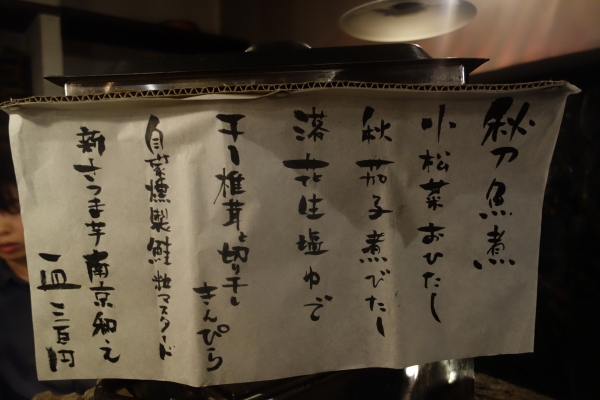 秋刀魚煮
小松菜おひたし
秋茄子煮びたし
落花生塩ゆで
干し椎茸と切り干し
きんぴら
自家燻製鮭 粒マスタード
新さつま芋南京和え
一皿 三百円